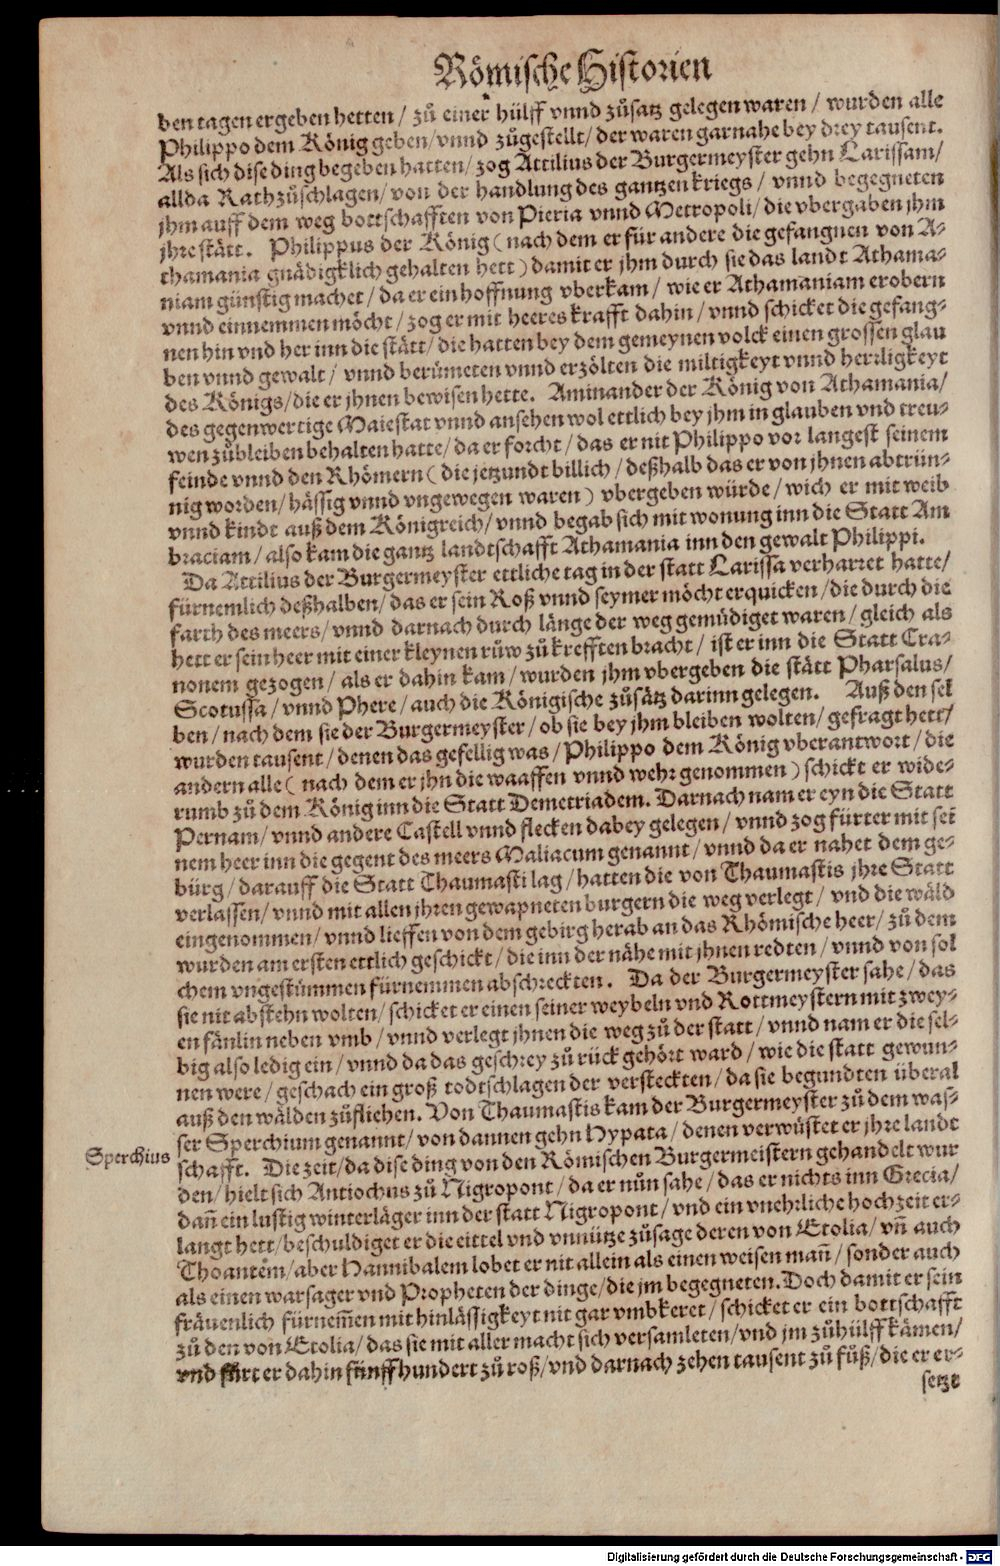 Römische Historien
ben tagen ergeben hetten / zů einer hülff vnnd zůsatz gelegen waren / wurden alle
Philippo dem König geben / vnnd zůgestellt / der waren gar nahe bey drey tausent.
Als sich dise ding begeben hatten / zog Attilius der Burgermeyster gehn Larissam /
allda Rath zůschlagen / von der handlung des gantzen kriegs / vnnd begegneten
jhm auff dem weg bottschafften von Pieria vnnd Metropoli / die vbergaben jhm
jhre stätt. Philippus der König ( nach dem er für andere die gefangnen von A-
thamania gnädigklich gehalten hett ) damit er jhm durch sie das landt Athama-
niam günstig machet / da er ein hoffnung vberkam / wie er Athamaniam erobern
vnnd einnemmen möcht / zog er mit heeres krafft dahin / vnnd schicket die gefang-
nen hin vnd her inn die stätt / die hatten bey dem gemeynen volck einen grossen glau
ben vnnd gewalt / vnnd berůmeten vnnd erzölten die miltigkeyt vnnd herrligkeyt
des Königs / die er jhnen bewisen hette. Aminander der König von Athamania /
des gegenwertige Maiestat vnnd ansehen wol ettlich bey jhm in glauben vnd treu-
wen zůbleiben behalten hatte / da er forcht / das er nit Philippo vor langest seinem
feinde vnnd den Rhömern ( die jetzundt billich / deßhalb das er von jhnen abtrün-
nig worden / hässig vnnd vngewegen waren ) vbergeben würde / wich er mit weib
vnnd kindt auß dem Königreich / vnnd begab sich mit wonung inn die Statt Am
braciam / also kam die gantz landtschafft Athamania inn den gewalt Philippi.
Da Attilius der Burgermeyster ettliche tag in der statt Larissa verharret hatte /
fürnemlich deßhalben / das er sein Roß vnnd seymer möcht erquicken / die durch die
farth des meers / vnnd darnach durch länge der weg gemüdiget waren / gleich als
hett er sein heer mit einer kleynen růw zů krefften bracht / ist er inn die Statt Cra-
nonem gezogen / als er dahin kam / wurden jhm vbergeben die stätt Pharsalus /
Scotussa / vnnd Phere / auch die Königische zůsätz darinn gelegen. Auß den sel
ben / nach dem sie der Burgermeyster / ob sie bey jhm bleiben wolten / gefragt hett /
wurden tausent / denen das gefellig was / Philippo dem König vberantwort / die
andern alle ( nach dem er jhn die waaffen vnnd wehr genommen ) schickt er wide-
rumb zů dem König inn die Statt Demetriadem. Darnach nam er eyn die Statt
Pernam / vnnd andere Castell vnnd flecken dabey gelegen / vnnd zog fürter mit sei
nem heer inn die gegent des meers Maliacum genannt / vnnd da er nahet dem ge-
bürg / darauff die Statt Thaumasti lag / hatten die von Thaumastis jhre Statt
verlassen / vnnd mit allen jhren gewapneten burgern die weg verlegt / vnd die wäld
eingenommen / vnnd lieffen von dem gebirg herab an das Rhömische heer / zů dem
wurden am ersten ettlich geschickt / die inn der nähe mit jhnen redten / vnnd von sol
chem vngestümmen fürnemmen abschreckten. Da der Burgermeyster sahe / das
sie nit abstehn wolten / schicket er einen seiner weybeln vnd Rottmeystern mit zwey-
en fänlin neben vmb / vnnd verlegt jhnen die weg zů der statt / vnnd nam er die sel-
big also ledig ein / vnnd da das geschrey zů rück gehört ward / wie die statt gewun-
nen were / geschach ein groß todtschlagen der versteckten / da sie begundten überal
auß den wälden zůfliehen. Von Thaumastis kam der Burgermeyster zů dem was-
ser Sperchium genannt / von dannen gehn Hypata / denen verwüstet er jhre landt
Sperchius
schafft. Die zeit / da dise ding von den Römischen Burgermeistern gehandelt wur
den / hielt sich Antiochus zů Nigropont / da er nůn sahe / das er nichts inn Grecia /
dañ ein lustig winterläger inn der statt Nigropont / vnd ein vnehrliche hochzeit er-
langt hett / beschuldiget er die eittel vnd vnnütze zůsage deren von Etolia / vñ auch
Thoantem / aber Hannibalem lobet er nit allein als einen weisen mañ / sonder auch
als einen warsager vnd Propheten der dinge / die jm begegneten. Doch damit er sein
fräuenlich fürnem̃en mit hinlässigkeyt nit gar vmbkeret / schicket er ein bottschafft
zů den von Etolia / das sie mit aller macht sich versamleten / vnd jm zůhülff kämen /
vnd fůrt er dahin fünffhundert zů roß / vnd darnach zehen tausent zů fůß / die er er-
setzt
Digitalisierung gefördert durch die Deutsche Forschungsgemeinschaft - DFG